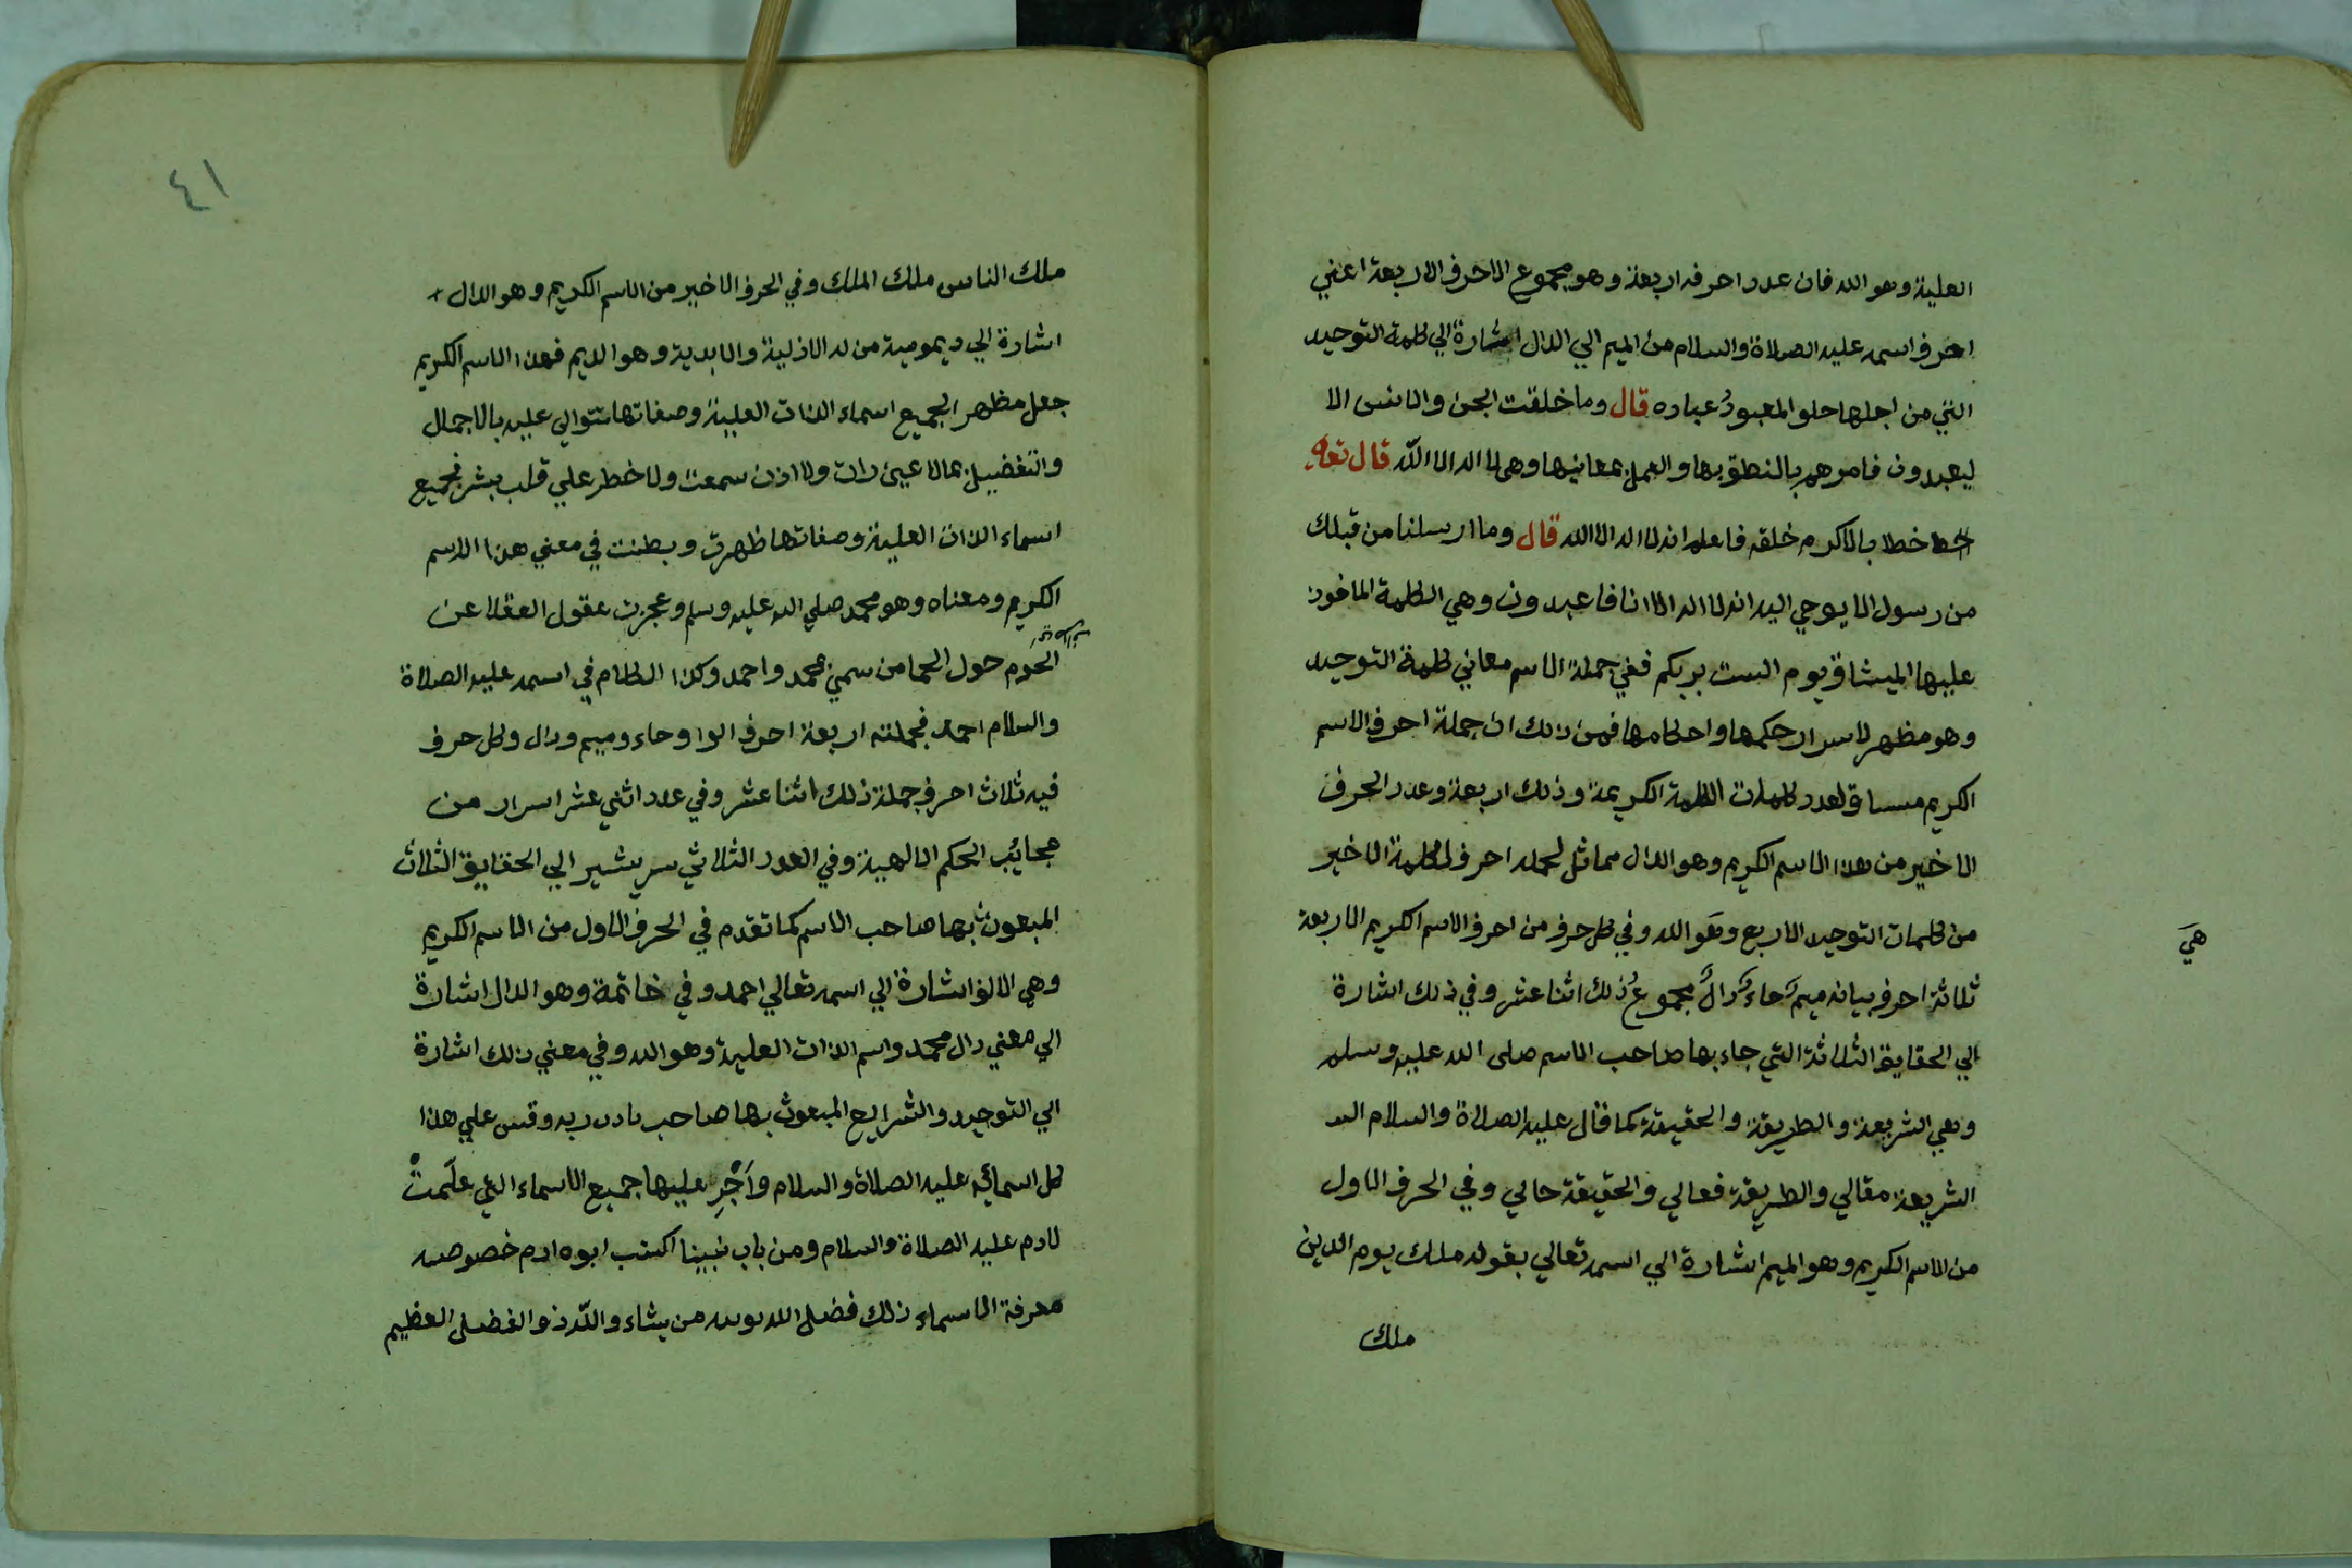 العلية وهو الله فان عدد احرفه اربعة وهو مجموع الاحرف الاربعة اعني
احرف اسمه عليه الصلاة والسلام من الميم الي الدال اشارة الي كلمة التوحيد
التي من اجلها المعبود عباده قال وما خلقت الجن والانس الا
ليعبدون فامرهم بالنطق بها والعمل بمعانيها وهي لا اله الا الله قال تعه
خطابا لاكرم خلقه فاعلم انه لا اله الا الله قال وما ارسلنا من قبلك
من رسول الا يوحي اليه انه لا اله الا انا فاعبدون وهي الكلمة الماخوذ
عليها الميثاق يوم الست بربكم ففي جملة الاسم معاني كلمة التوحيد
وهو مظهر لاسرار حكمها واحكامها فمن ذلك ان جملة احرف الاسم
الكريم مساوٍ لعدد كلمات الكلمة الكريمة وذلك اربعة وعدد الحرف
الاخير من هذا الاسم الكريم وهو الدال مماثل لجملة احرف الكلمة الاخير
من كلمات التوحيد الاربع وهو الله وفي كل حرف من احرف الاسم الكريم الاربعة
هي
ثلاثة احرف بيانه ميم حاء دال مجموع ذلك اثنا عشر وفي ذلك اشارة
الي الحقايق الثلاثة التي جاء بها صاحب الاسم صلى الله عليه وسلم
وهي الشريعة والطريقة والحقيقة كما قال عليه الصلاة والسلام
الشريعة مقالي والطريقة فعالي والحقيقة حالي وفي الحرف الاول
من الاسم الكريم وهو الميم اشارة الي اسمه تعالي بقوله ملك يوم الدين
ملك
٤١
ملك الناس ملك الملك وفي الحرف الاخير من الاسم الكريم وهو الدال
اشارة الي ديمومية من له الازلية والابدية وهو الديم فهذا الاسم الكريم
جعل مظهرا لجميع اسماء الذات العلية وصفاتها تتوالي عليه بالاجمال
والتفضيل بما لا عين رات ولا اذن سمعت ولا خطر علي قلب بشر فجميع
اسماء الذات العلية وصفاتها ظهرت وبطنت في معني هذا الاسم
الكريم ومعناه وهو محمد صلي الله عليه وسلم وعجزت عقول العقلا عن
الحوم حول الحما من سمي محمد واحمد وكذا الكلام في اسمه عليه الصلاة
والسلام احمد فجملته اربعة احرف الوا وحاء وميم ودال وكل حرف
فيه ثلاث احرف جملة ذلك اثنا عشر وفي عدد اثني عشر اسرار من
عجايب الحكم الالهية وفي العدد الثلاثي سر يشير الي الحقايق الثلاث
المبعوث بها صاحب الاسم كما تقدم في الحرف الاول من الاسم الكريم
وهي الالف اشارة الي اسمه تعالي احمد وفي خاتمة وهو الدال اشارة
الي معني دال محمد واسم الذات العلية وهو الله وفي معني ذلك اشارة
الي التوحيد والشرايع المبعوث بها صاحب باذن ربه وقس علي هذا
كل اسمائه عليه الصلاة والسلام وَاَجْرِ عليها جميع الاسماء التي علَمتْ
لادم عليه الصلاة والسلام ومن باب نبينا اكتسب ابوه ادم خصوصيه
معرفة الاسماء ذلك فضل الله يوتيه من يشاء والله ذو الفضل العظيم